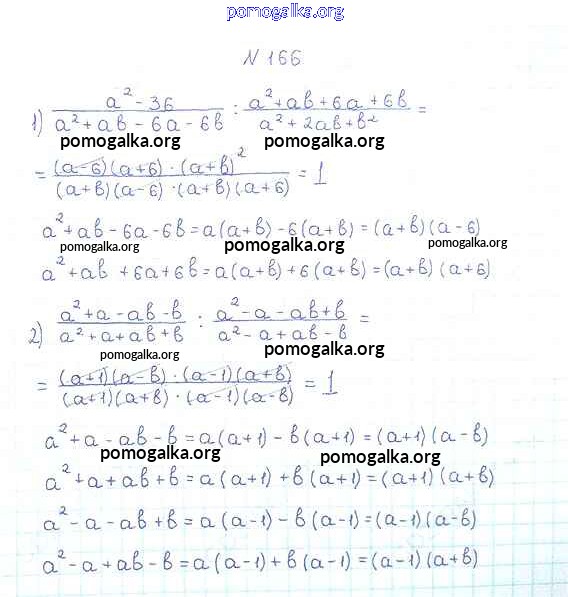 pomogalka.org
N 166
1) (a² - 36)/(a² + ab - 6a - 6b) : (a² + ab + 6a + 6b)/(a² + 2ab + b²) =
pomogalka.org pomogalka.org
= ((a-6)(a+6) · (a+b)²)/((a+b)(a-6) · (a+b)(a+6)) = 1
a² + ab - 6a - 6b = a(a+b) - 6(a+b) = (a+b)(a-6)
pomogalka.org pomogalka.org pomogalka.org
a² + ab + 6a + 6b = a(a+b) + 6(a+b) = (a+b)(a+6)
2) (a² + a - ab - b)/(a² + a + ab + b) : (a² - a - ab + b)/(a² - a + ab - b) =
pomogalka.org pomogalka.org
= ((a+1)(a-b) · (a-1)(a+b))/((a+1)(a+b) · (a-1)(a-b)) = 1
a² + a - ab - b = a(a+1) - b(a+1) = (a+1)(a-b)
pomogalka.org pomogalka.org
a² + a + ab + b = a(a+1) + b(a+1) = (a+1)(a+b)
a² - a - ab + b = a(a-1) - b(a-1) = (a-1)(a-b)
a² - a + ab - b = a(a-1) + b(a-1) = (a-1)(a+b)